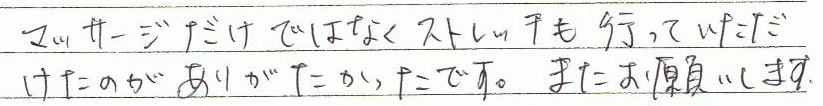 マッサージだけではなくストレッチも行っていただ
けたのがありがたかったです。またお願いします.